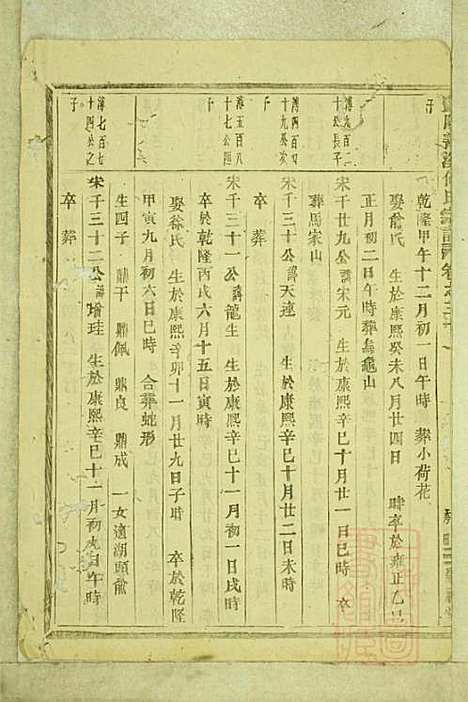 子
乾隆甲午十二月初一日午時 葬小荷花
娶俞氏 生於康熙癸未八月廿四日 時卒於雍正乙巳
正月初二日午時葬烏龜山
十 長子
宋千廿九公諱宋元 生於康熙辛巳十月廿一日巳時 卒
葬馬家山
傅四百
十九公次
子
宋千三十公諱天遠 生於康熙辛巳十月廿二日未時
卒 葬
傳五百八
十七公四
子
宋千三十一公諱龍生 生於康熙辛巳十一月初一日戌時
卒於乾隆丙戌六月十五日寅時
娶徐氏 生於康熙辛卯十一月廿九日子時 卒於乾隆
甲寅九月初六日巳時 合葬蛇形
生四子 鼎干 鼎佩 鼎良 鼎成 一女適湖頭俞
傳七百七
十四公之
子
宋千三十二公諱瑜珪 生於康熙辛巳十一月初九日午時
卒 葬